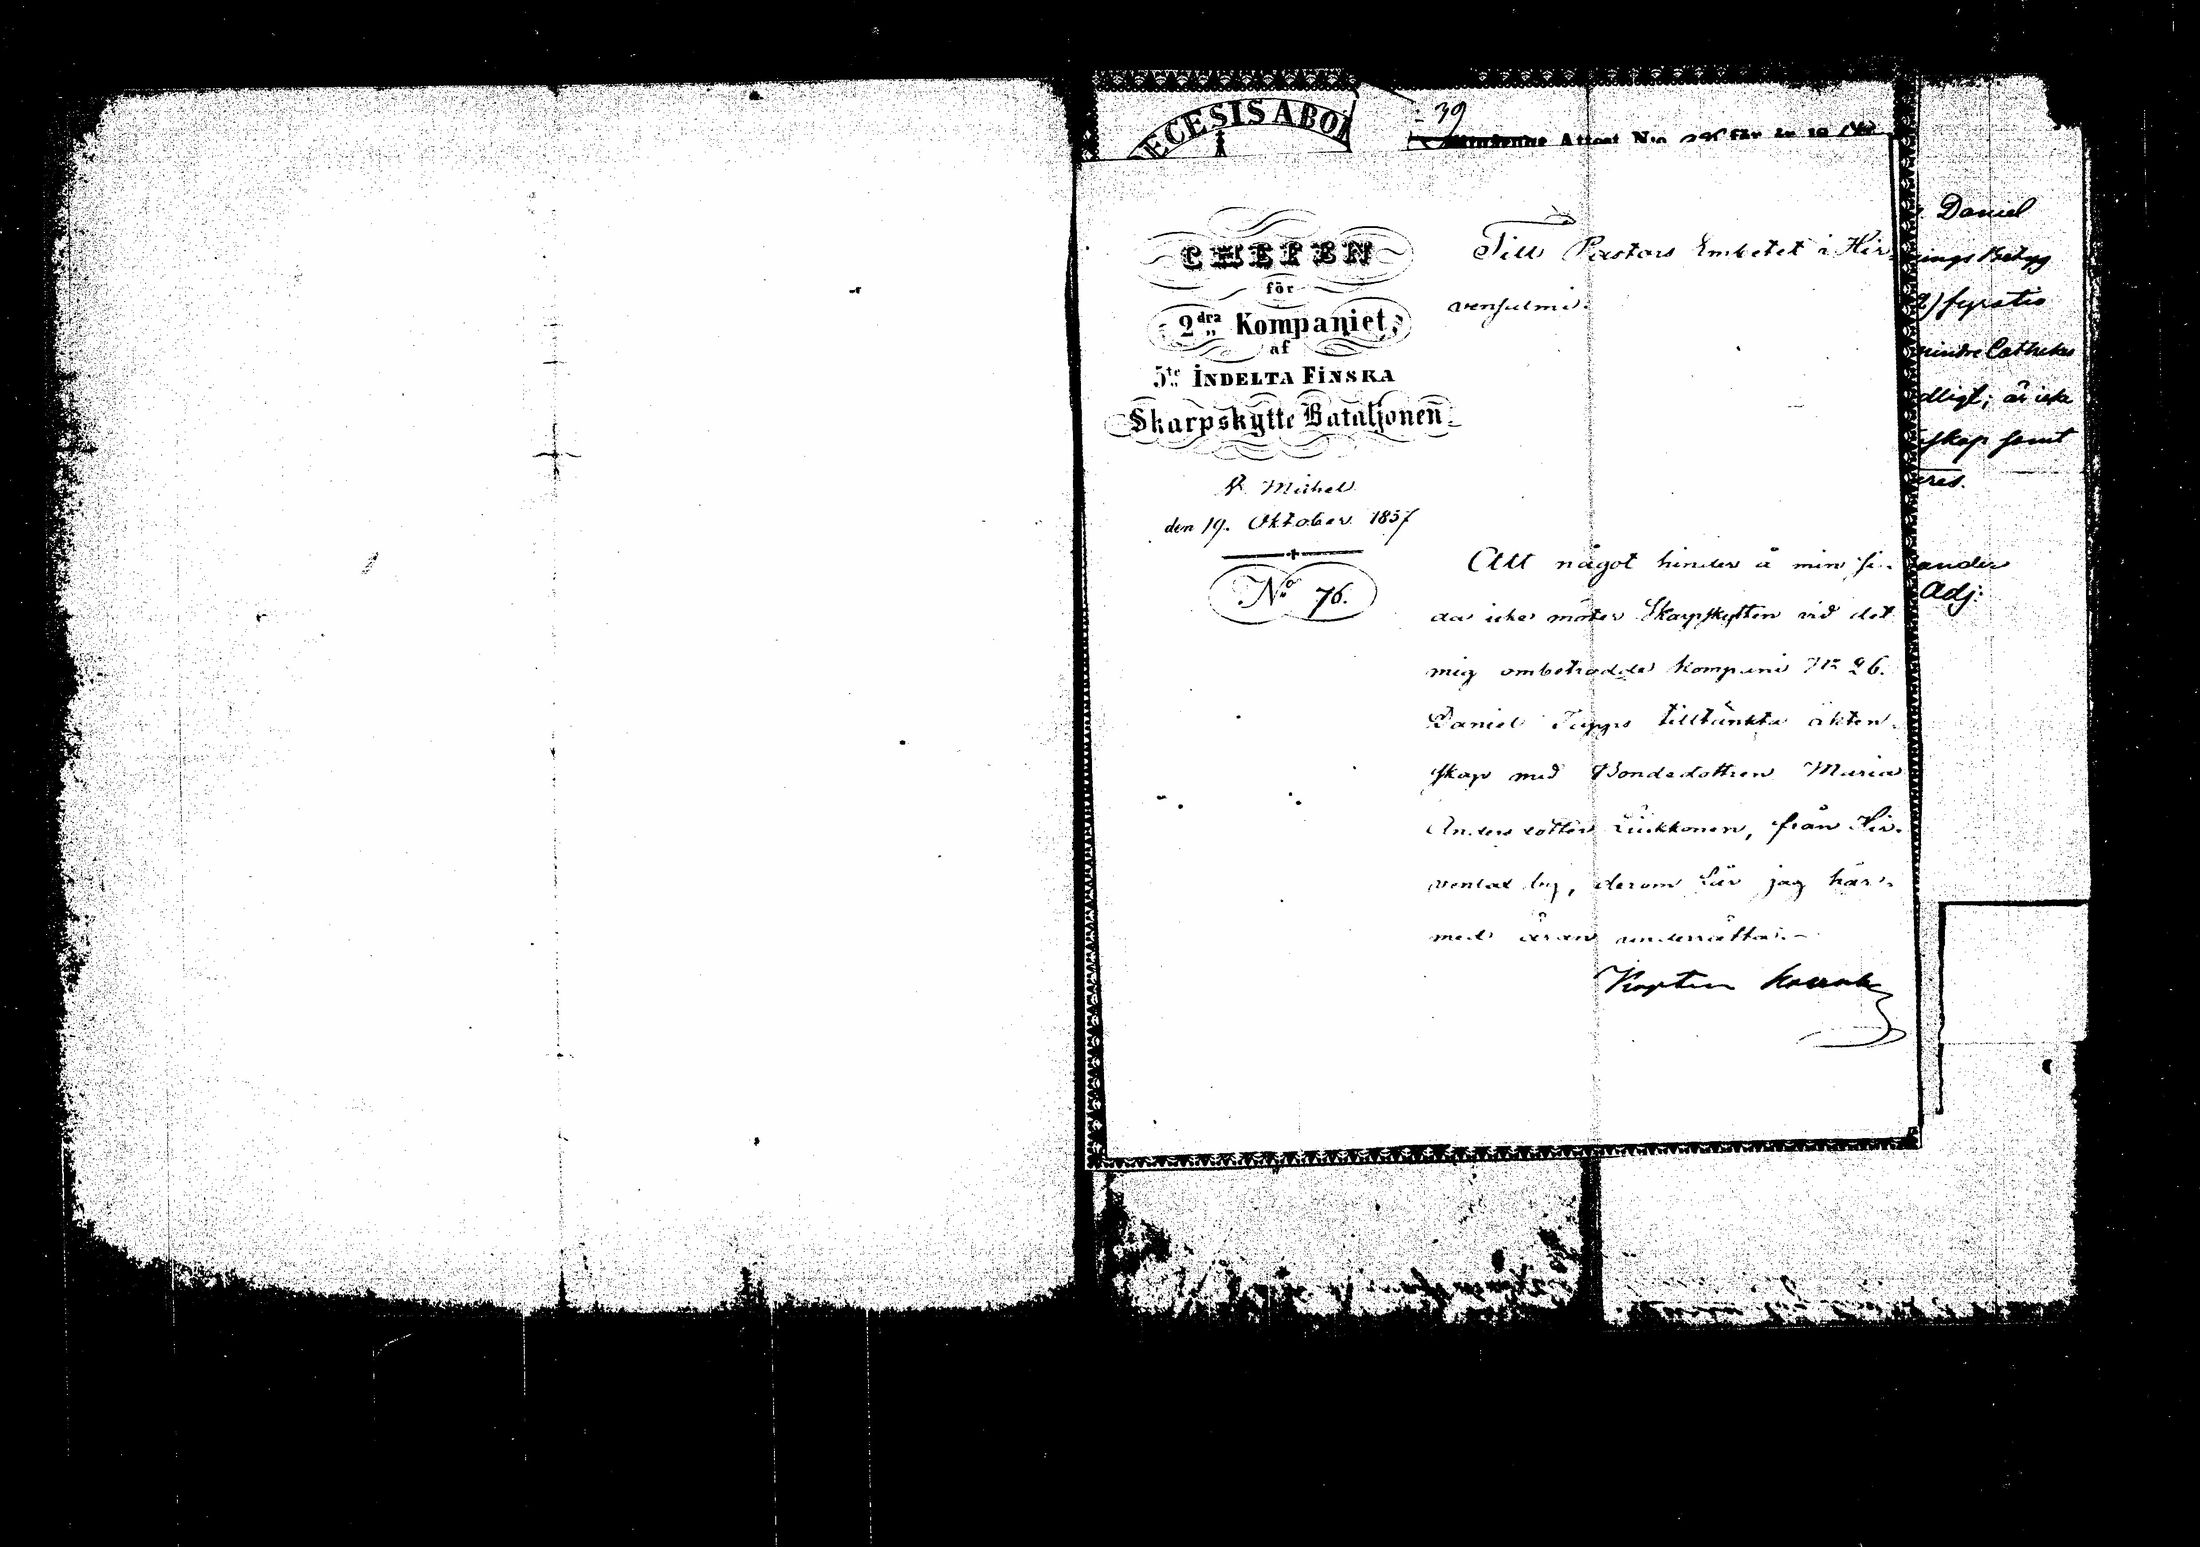 ECESIS ABO
39
Attest N:o
CHEFEN
för
2dra Kompaniet,
af
5te INDELTA FINSKA
Skarpskytte Bataljonen
St Michel
den 19. Oktober 1857
No 76.
Till Pastors Embetet i Hir-
vensalmi.
Att något hinder å min si-
da icke möter Skarpskytten vid det
mig ombetrodda kompani No 26.
Daniel Tapps tilltänkta äkten-
skap med Bondedottren Maria
Andersdotter Liukkonen, från Hir-
venlax by, derom får jag här-
med äran underrätta.-
Kapten
Daniel
ings Betyg
fyratio
mindre Catheks
dligt; är icke
skap samt
eres.
ander
Adj: